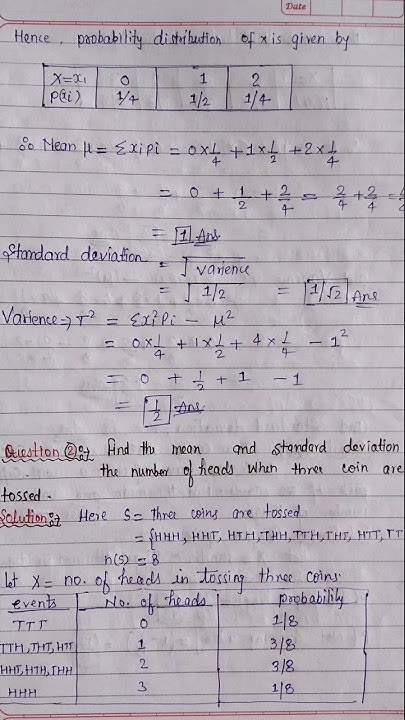 Date
Hence, probability distribution of x is given by
X=xi 0 1 2
P(xi) 1/4 1/2 1/4
∴ Mean μ = Σxipi = 0×1/4 + 1×1/2 + 2×1/4
= 0 + 1/2 + 2/4 = 2/4 + 2/4 =
= 1 Ans
Standard deviation = √varience
= √1/2 = 1/√2 Ans
Varience → σ² = Σxi²Pi - μ²
= 0×1/4 + 1×1/2 + 4×1/4 - 1²
= 0 + 1/2 + 1 - 1
= 1/2 Ans
Question ②:→ Find the mean and standard deviation
the number of heads when three coin are
tossed.
Solution:→ Here S = three coins are tossed
= {HHH, HHT, HTH, THH, TTH, THT, HTT, TT
n(s) = 8
let X = no. of heads in tossing three coins.
events No. of heads probability
TTT 0 1/8
TTH, THT, HTT 1 3/8
HHT, HTH, THH 2 3/8
HHH 3 1/8